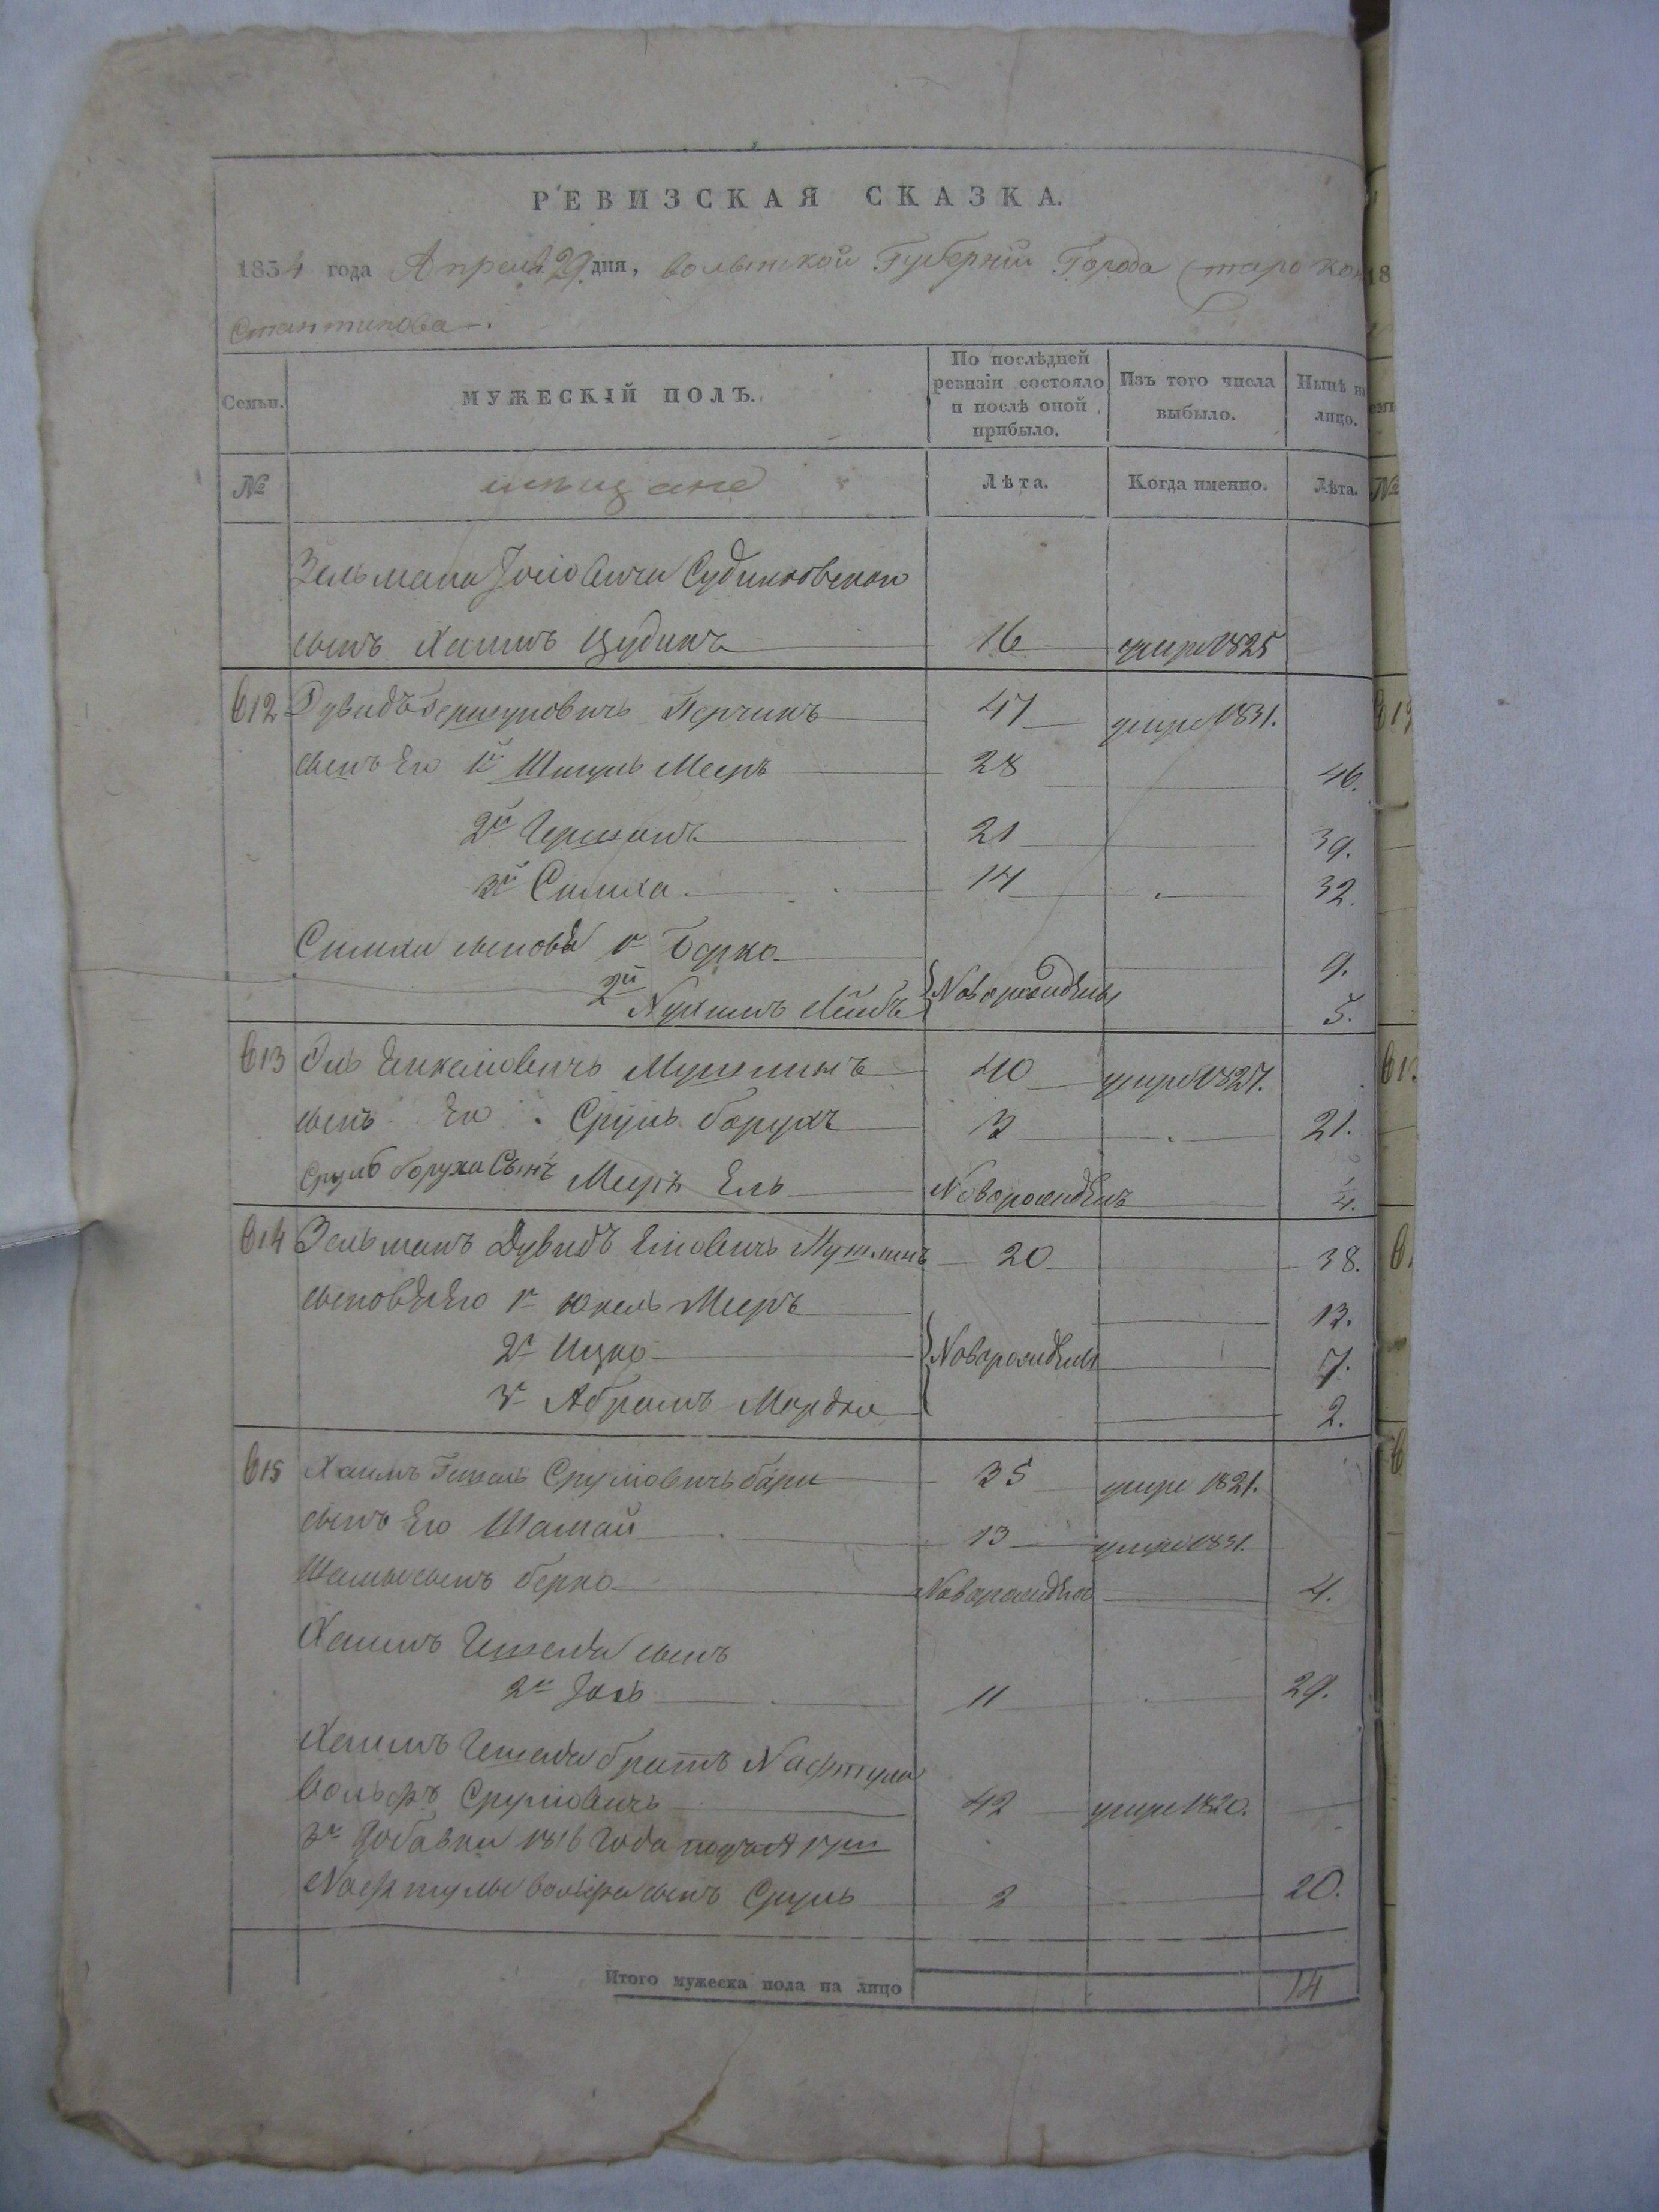 РЕВИЗСКАЯ СКАЗКА.
1834 года Апреля 29 дня, Волынской Губерніи Города Старокон
стантинова.
Семьи. МУЖЕСКІЙ ПОЛЪ. По послѣдней ревизіи состояло и послѣ оной прибыло. Изъ того числа выбыло. Нынѣ на лицо.
№ мѣщане Лѣта. Когда именно. Лѣта.
Зельмана Іосіовича
сынъ Хаимъ 16 умре 1825
612 Дувидъ Гершуновичъ 47 умре 1831.
сынъ Его 1й Шмуль Мееръ 28 46.
2й Гершонъ 21 39.
3й Симха 14 32.
Симхи сыновья 1й Борко 9.
2й Нухимъ Лейбъ Новорожденны 5.
613 Эль Янкеліовичъ Мушлинъ 40 умре 1827.
сынъ Его Сруль Борухъ 3 21.
Сруль Боруха Сынъ Меиръ Ель Новорожденъ 4.
614 Зельманъ Дувидъ Еліовичъ Мушлинъ 20 38.
сыновья Его 1й Юкель Меиръ 13.
2й Ицко Новорожденны 7.
3й Абрамъ Мордко 2.
615 Хаимъ Гешель Сруліовичъ 35 умре 1821.
сынъ Его Шамай 13 умре 1831.
Шамая сынъ Берко Новорожденъ 4.
Хаимъ Гешеля сынъ
2й Іось 11 29.
Хаимъ Гешеля братъ Нафтула
Вольфъ Сруліовичъ 42 умре 1820.
добавки 1816 года
Нафтулы Вольфа сынъ Сруль 2 20.
Итого мужеска пола на лицо 14